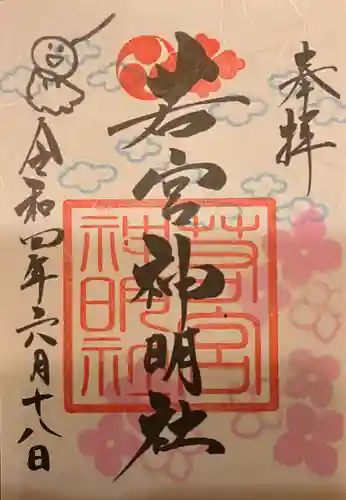 奉拝
若宮神明社
令和四年六月十八日
若宮
神明社